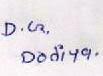 D. G.
Dodiya.